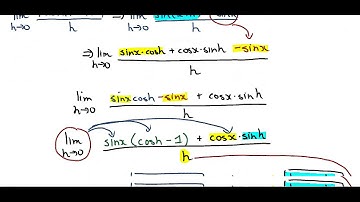 lim h→0 h lim h→0 h
⇒ lim h→0 sinx·cosh + cosx·sinh - sinx / h
lim h→0 sinxcosh - sinx + cosx·sinh / h
lim h→0 sinx (cosh - 1) + cosx·sinh / h